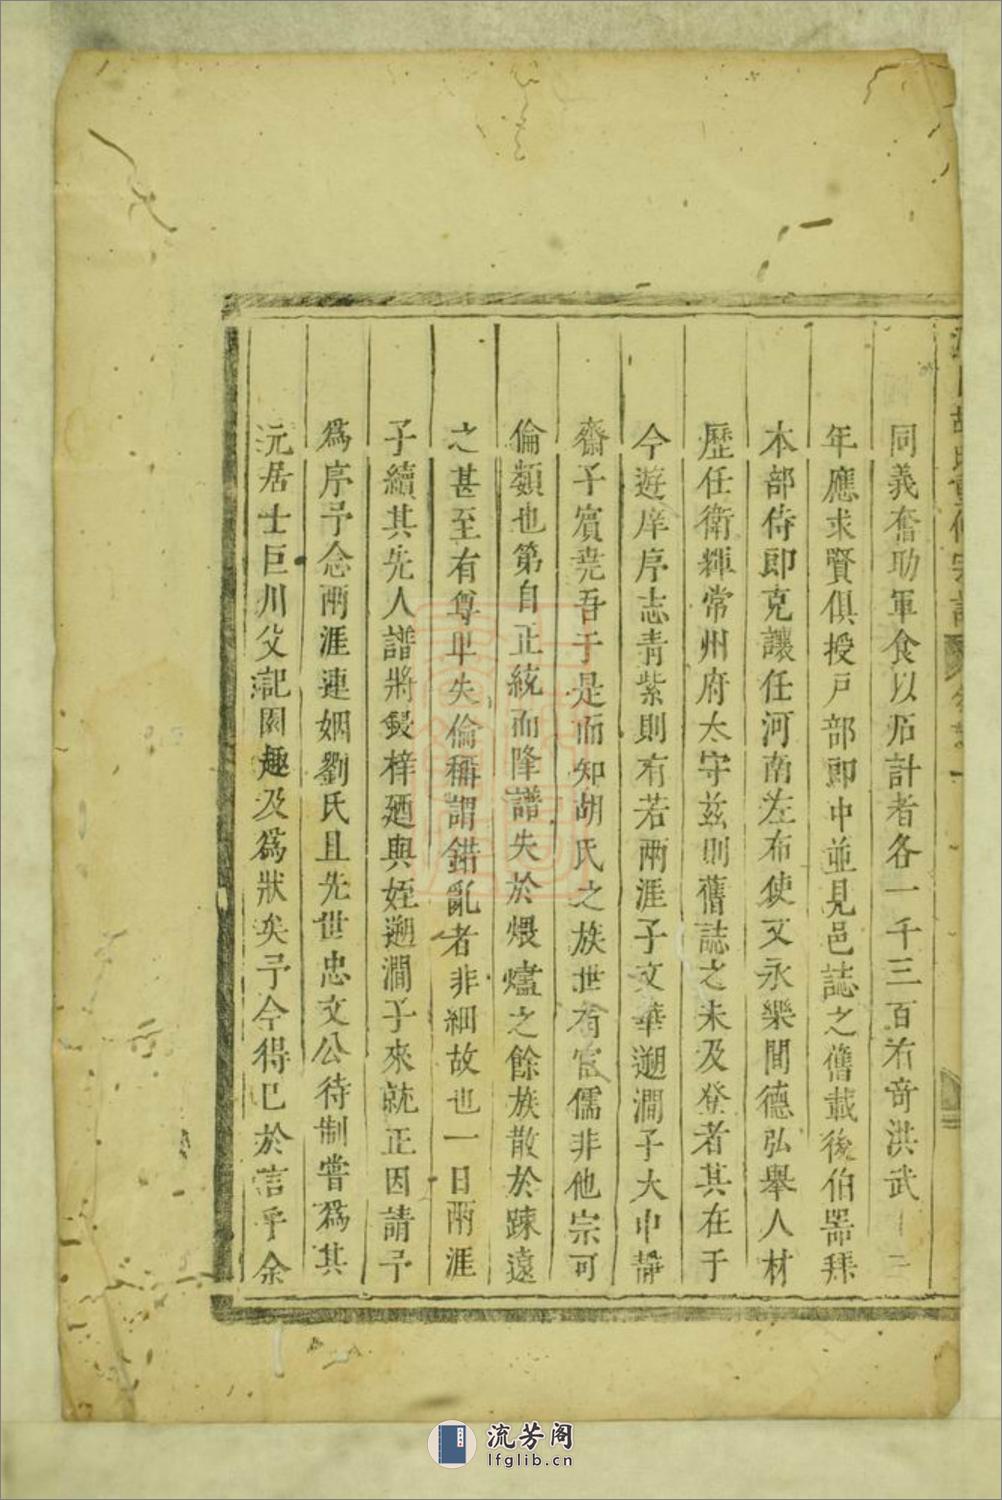 同義奮助軍食以石計者各一千三百有奇洪武十三
年應求賢俱授戸部郎中並見邑誌之舊載後伯噐拜
本部侍郎克讓任河南左布使又永樂間德弘舉人材
歷任衛輝常州府太守兹則舊誌之未及登者其在于
今遊庠序志青紫則有若兩涯子文華遡澗子大中靜
齋子賓堯吾于是而知胡氏之族世有宦儒非他宗可
倫類也第自正統而降譜失於煨燼之餘族散於踈遠
之甚至有尊卑失倫稱謂錯亂者非細故也一日兩涯
子續其先人譜將鋟梓廼與姪遡澗子來就正因請予
為序予念兩涯連姻劉氏且先世忠文公待制嘗為其
沅居士巨川父記園趣及為狀矣予今得已於言乎余
流芳阁
lfglib.cn